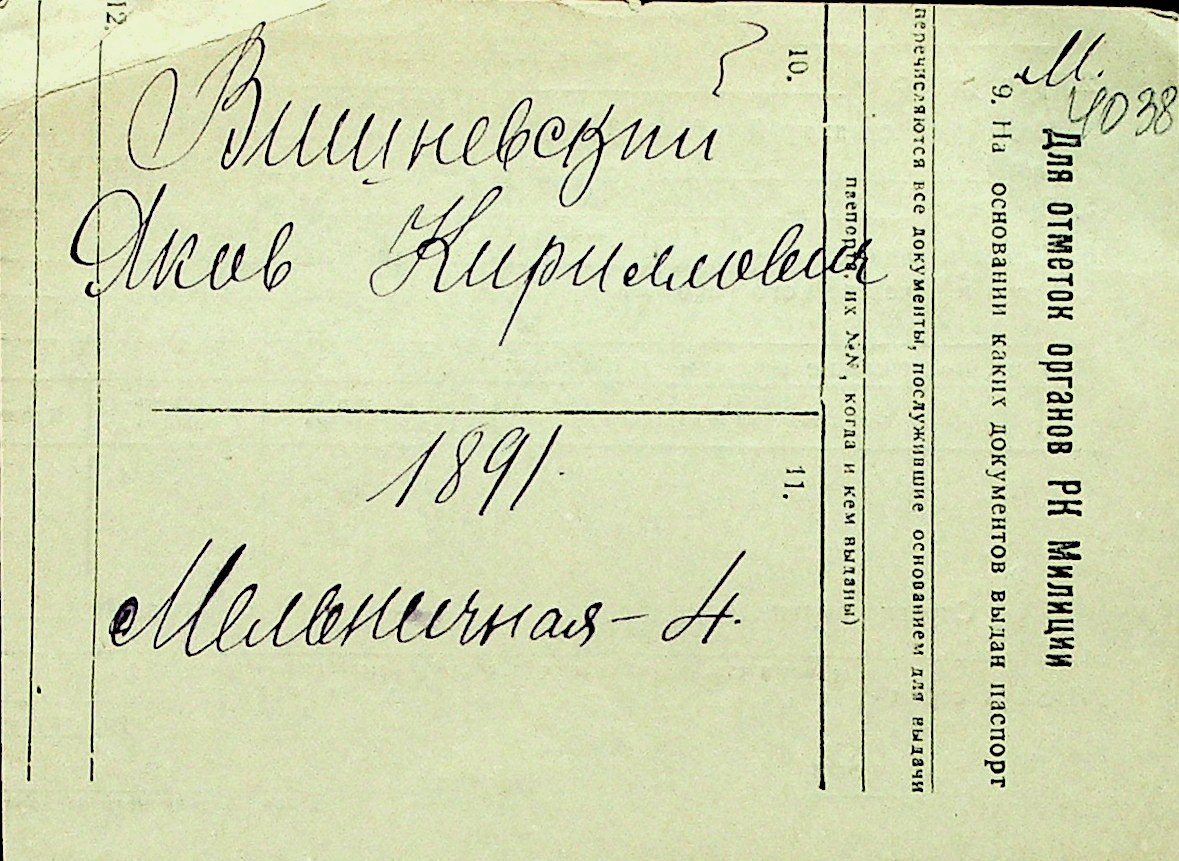 М.
4038
Вишневский
Яков Кириллович
1891
Мельничная - 4.
Для отметок органов РК Милиции
9. На основании каких документов выдан паспорт
перечисляются все документы, послужившие основанием для выдачи
паспорта их №№, когда и кем выданы)
10.
11.
12.